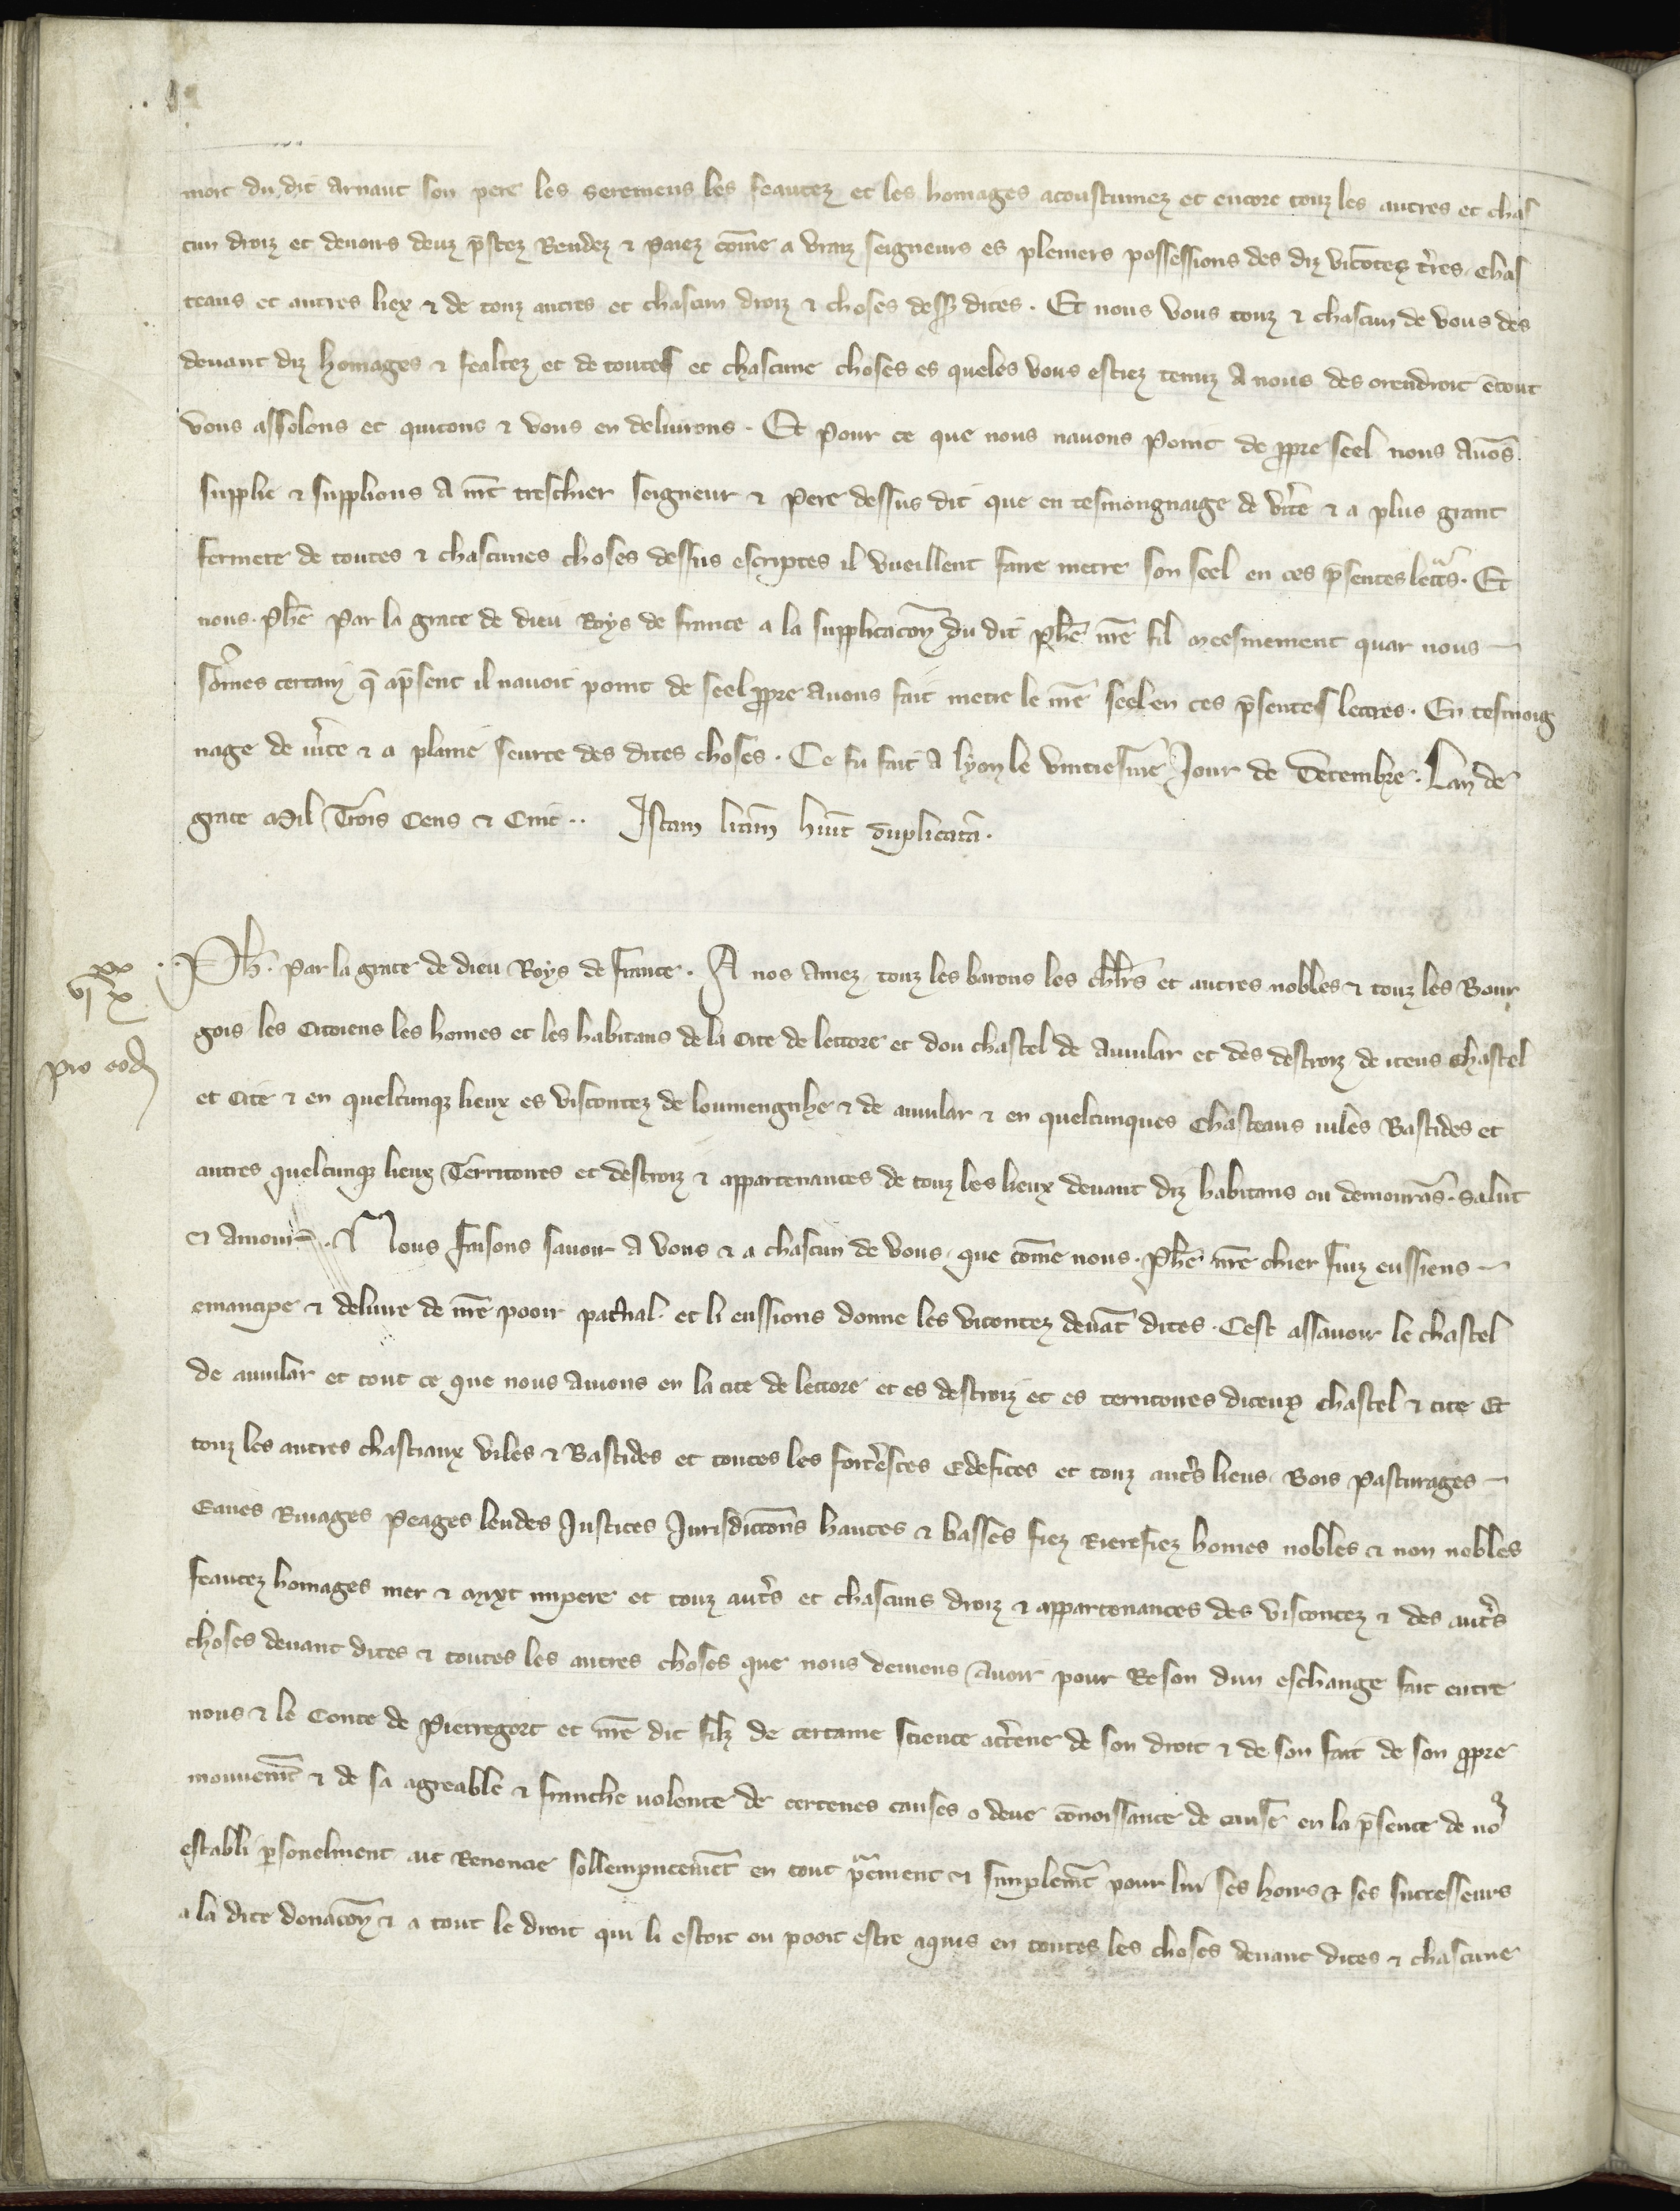 mort du dit arnaut son pere les seremens les feautez et les homages acoustumez et encore touz les autres et chas
cun droiz et devoirs deuz p̄stez Rendez ⁊ paiez com̄e a vraiz seigneurs es pleniers possessions des diz vicōtez t̄res. chas
teaus et autres liex ⁊ de touz autres et chascun droiz ⁊ choses dess9 dites. Et nous vous touz ⁊ chascun de vous des
devant diz homages ⁊ fealtez et de toutes et chascune choses es queles vous estiez tenuz A nous des orendroit ētout
vous assolons et quitons ⁊ vous en delivrons. Et pour ce que nous navons point de ꝓpre seel nous Avōs
supplie ⁊ supplions A nr̄e treschier seigneur ⁊ pere dessus dit que en tesmongnaige de v̄ite ⁊ a plus grant
fermete de toutes ⁊ chascunes choses dessus escriptes il vueillent faire metre son seel en ces p̄sentes lett͛s. Et
nous. Ph̄e par la grace de dieu Roys de france a la supplicacōn du dit Ph̄e nr̄e fil meesmement quar nous
som̄es certain q̄ ap̄sent il navoit point de seel ꝓpre avons fait metre le nr̄e seel en ces p̄sentes lettres. En tesmoig
nage de v̄ite ⁊ a plaine seurte des dites choses. Ce fu fait A lyon le vintiesme Jour de Decembre. Lan de
grace Mil Trois Cens ⁊ Cinc.. Istam litām h̄uit duplicatā.
xx
vj x
pro eod
Ph̄. par la grace de dieu Roys de france. A nos amez touz les barons les chlrs̄ et autres nobles ⁊ touz les Bour
gois les Citoiens les homes et les habitans de la Cite de lectore et dou chastel de auvilar et des destroiz de iceus chastel
et Cite ⁊ en quelcunq̄z lieux es viscontez de loumengnhe ⁊ de auvilar ⁊ en quelcunques Chasteaus viles Bastides et
autres quelcunq̄z lieux Territoires et destroiz ⁊ appartenances de touz les lieux devant diz habitans ou demourās. salut
et amour. Nous faisons savoir A vous ⁊ a chascun de vous. que com̄e nous. Ph̄e nr̄e chier fiuz eussiens
emancipe ⁊ delivre de nr̄e pooir pat̄nal. et li eussions donne les vicontez devāt dites. Cest assavoir le chastel
de auvilar et tout ce que nous Avions en la cite de lectore et es destroiz et es territoires diceux chastel ⁊ cite Et
touz les autres chastiaux viles ⁊ Bastides et toutes les fort̄esces Edefices et touz aut̄s lieus. Bois pasturages
Eaues Rivages peages leudes Justices Jurisdictōns hautes ⁊ basses fiez Rierefiez homes nobles ⁊ non nobles
feautez homages mer ⁊ mixt impere et touz aut̄s et chascuns droiz ⁊ appartenances des viscontez ⁊ des aut̄s
choses devant dites ⁊ toutes les autres choses que nous deviens avoir pour Reson dun eschange fait entre
nous ⁊ le Conte de Pierregort et nr̄e dit filz de certaine science acc̄tene de son droit ⁊ de son fait de son ꝓpre
mouvem̄t ⁊ de sa agreable ⁊ franche volente de certenes causes o deue cōnoissance de cause en la p̄sence de no9
establi ꝑsonelment ait Renoncie sollempneem̄t en tout p͛cīment ⁊ simplem̄t pour lui ses hoirs ⁊ ses successeurs
a la dite donacōn ⁊ a tout le droit qui li estoit ou pooit estre aquis en toutes les choses devant dites ⁊ chascune